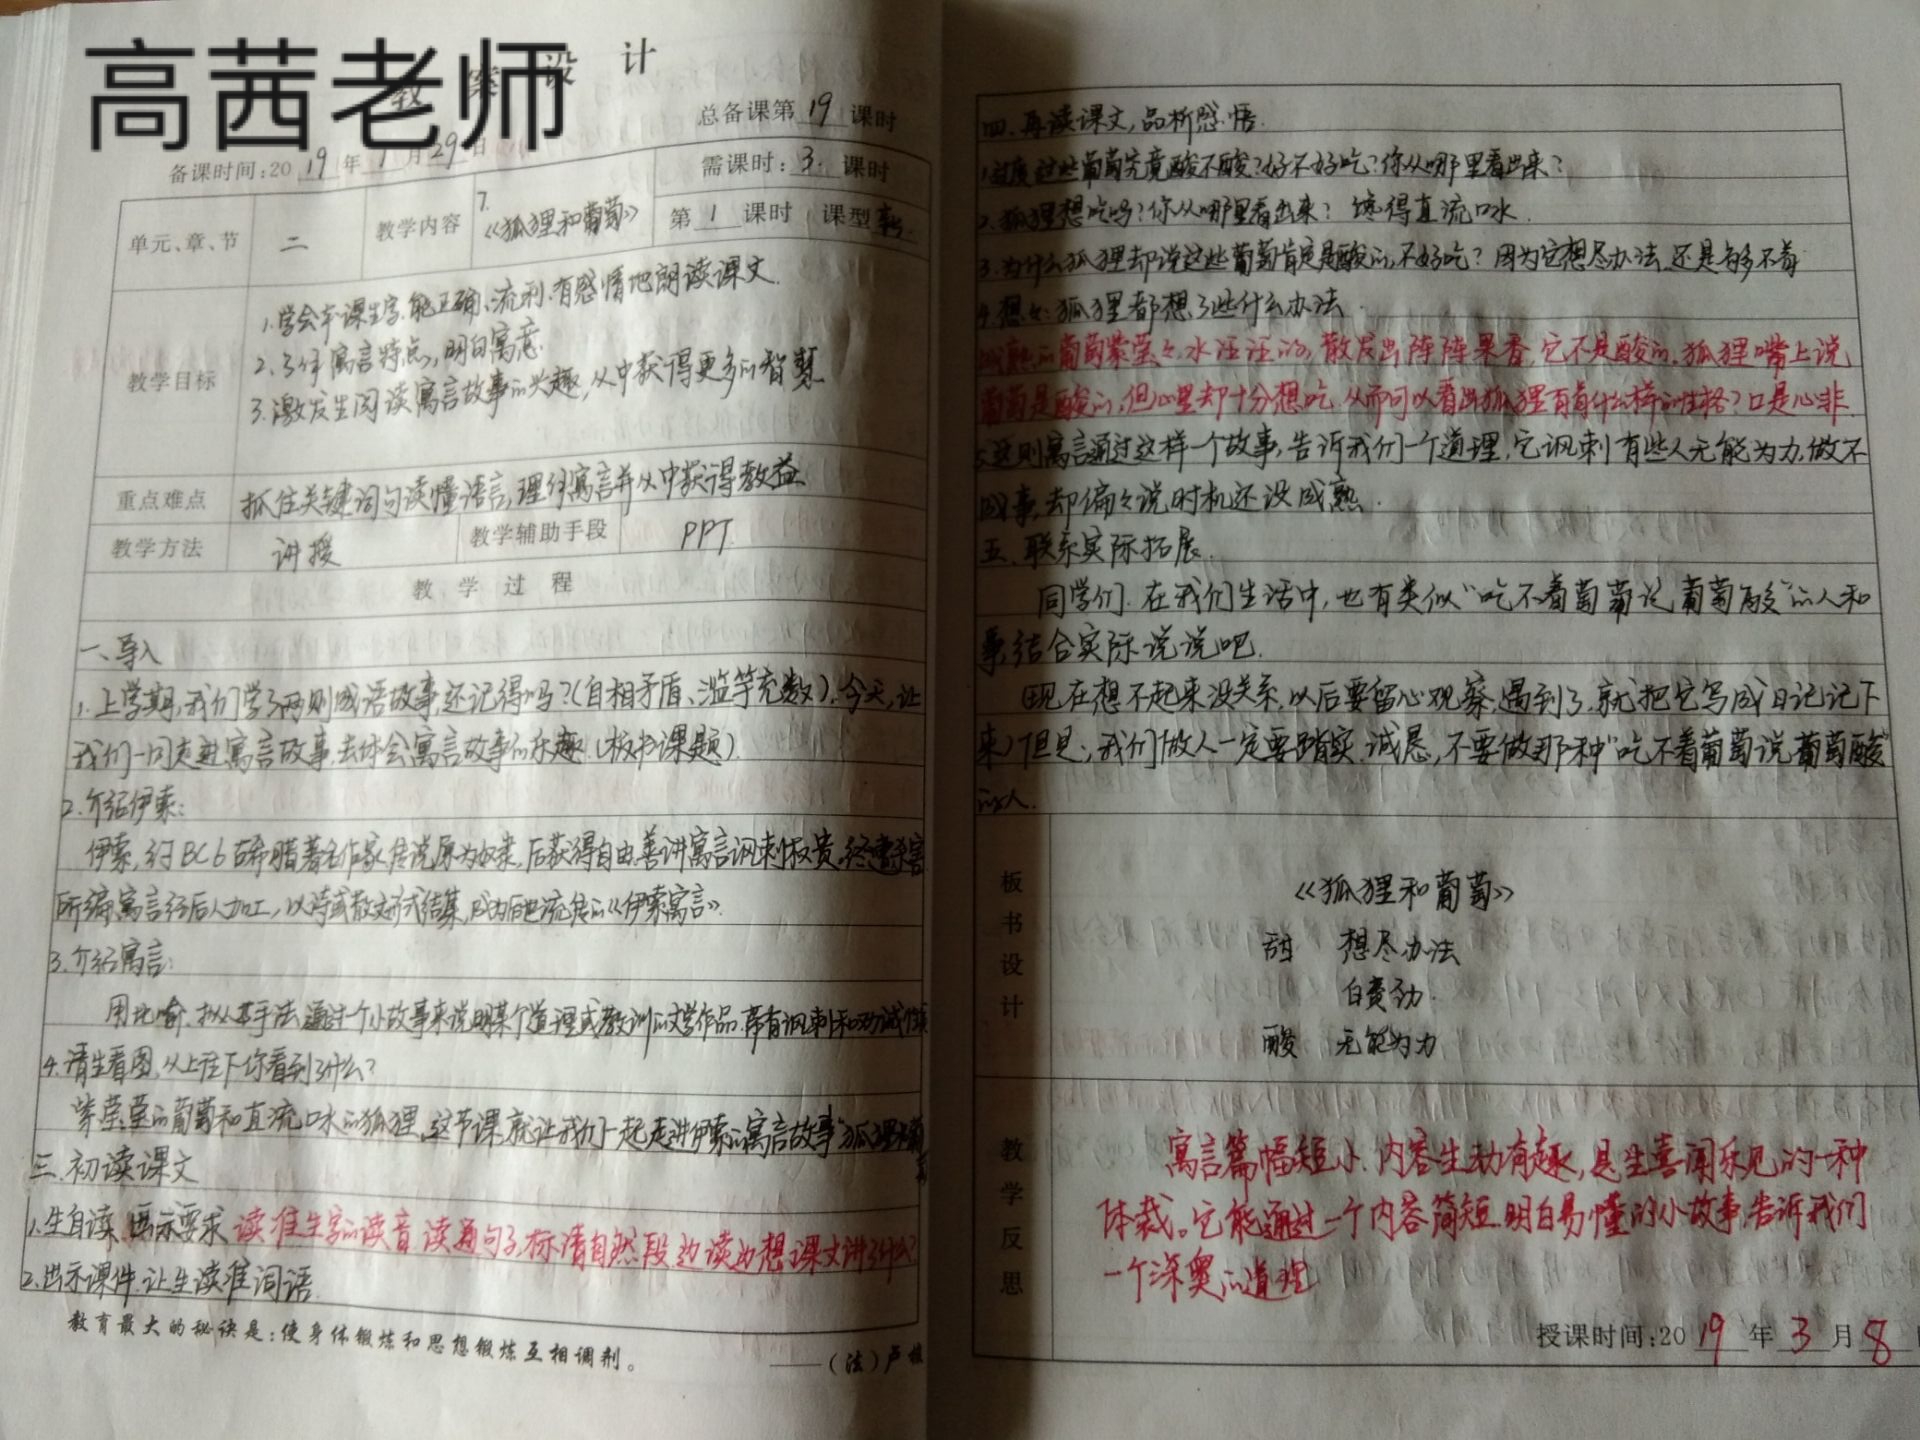 高茜老师
教案设计
总备课第 19 课时
备课时间:2019年1月29日
需课时:3.课时
单元、章、节 二 教学内容 7.《狐狸和葡萄》 第 1 课时 课型
教学目标
1.学会本课生字,能正确、流利、有感情地朗读课文.
2.了解寓言特点,明白寓意.
3.激发生阅读寓言故事的兴趣,从中获得更多的智慧.
重点难点 抓住关键词句读懂语言,理解寓言并从中获得教益
教学方法 讲授 教学辅助手段 PPT
教 学 过 程
一、导入
1.上学期,我们学了两则成语故事,还记得吗?(自相矛盾、滥竽充数).今天,让
我们一同走进寓言故事,去体会寓言故事的乐趣.(板书课题)
2.介绍伊索:
伊索,约BC6古希腊著名作家,传说原为奴隶,后获得自由,善讲寓言讽刺权贵,终遭杀害
所编寓言经后人加工,以诗或散文形式结集,成为后世流传的《伊索寓言》.
3.介绍寓言:
用比喻、拟人等手法,通过一个小故事来说明某个道理或教训的文学作品,带有讽刺和劝诫
4.请生看图,从上往下你看到了什么?
紫莹莹的葡萄和直流口水的狐狸,这节课就让我们一起走进伊索的寓言故事"狐狸和葡萄
三、初读课文
1.生自读,出示要求 读准生字的读音,读通句子,标清自然段,边读边想课文讲了什么?
2.出示课件,让生读准词语.
教育最大的秘诀是:使身体锻炼和思想锻炼互相调剂。
——(法)卢梭
四.再读课文,品析感悟.
1.过度 这些葡萄究竟酸不酸?好不好吃?你从哪里看出来?
2.狐狸想吃吗?你从哪里看出来? 馋得直流口水.
3.为什么狐狸却说这些葡萄肯定是酸的,不好吃? 因为它想尽办法,还是够不着
4.想想:狐狸都想了些什么办法.
成熟的葡萄紫莹々,水汪汪的,散发出阵阵果香,它不是酸的,狐狸嘴上说
葡萄是酸的,但心里却十分想吃,从而可以看出狐狸有着什么样的性格?口是心非.
5.这则寓言通过这样一个故事,告诉我们一个道理,它讽刺有些人无能为力,做不
成事,却偏々说时机还没成熟.
五.联系实际拓展.
同学们.在我们生活中,也有类似"吃不着葡萄说葡萄酸"的人和
事,结合实际说说吧.
(现在想不起来没关系,以后要留心观察,遇到了,就把它写成日记记下
来)但是,我们做人一定要踏实、诚恳,不要做那种"吃不着葡萄说葡萄酸"
的人.
板书设计
《狐狸和葡萄》
甜 想尽办法
白费劲.
酸 无能为力
教学反思
寓言篇幅短小,内容生动有趣,是生喜闻乐见的一种
体裁。它能通过一个内容简短,明白易懂的小故事,告诉我们
一个深奥的道理
授课时间:2019年3月8